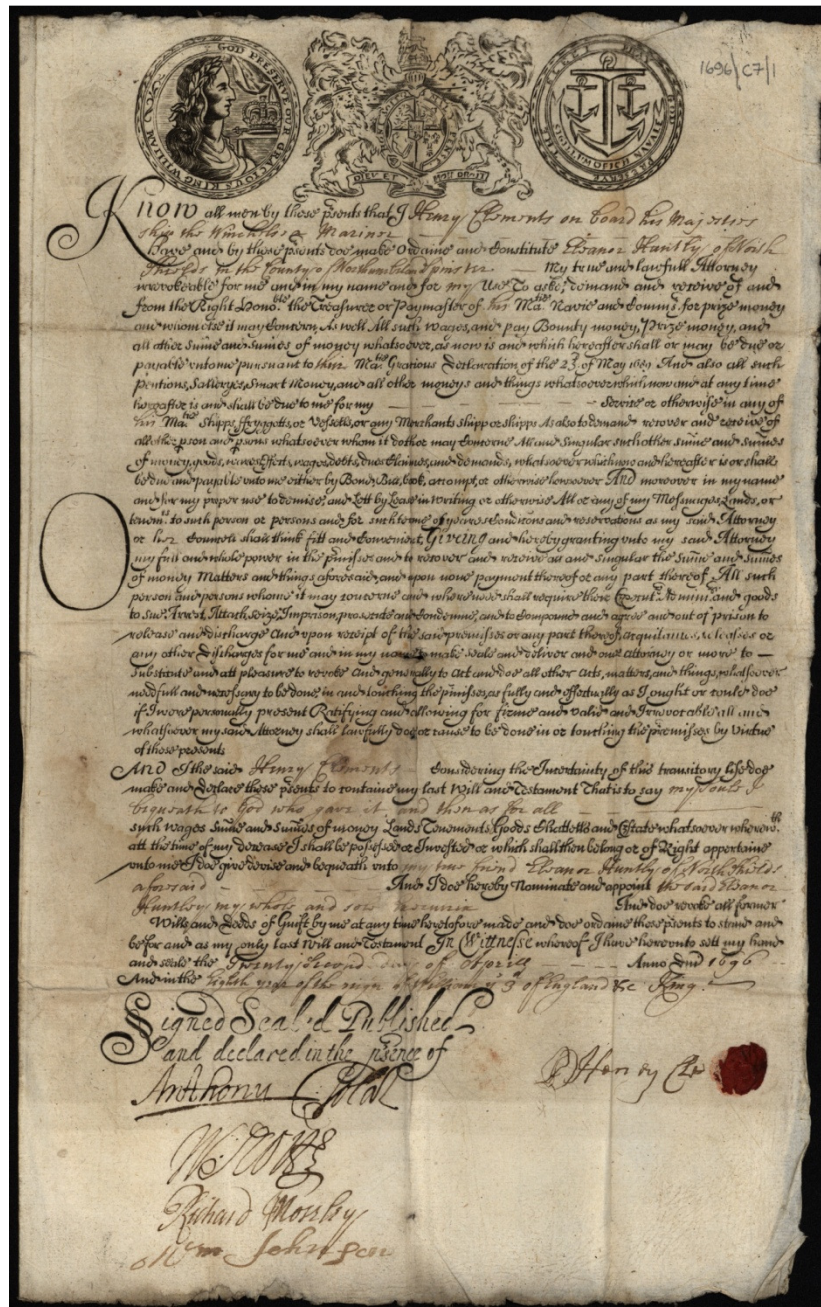 GOD PRESERVE OUR GRACIOUS KING WILLIAM
DIEV ET MON DROIT
1696/C7/1
Know all men by these psents that I Henry Clements on board his Majesties
ship the Winchelse Mariner
Have and by these psents doe make ordaine and Constitute Eleanor Huntly of North
Shields in the County of Northumberland My true and lawfull Attorney
irrevokeable for me and in my name and for my Use To aske, demand and receive of and
from the Right Hono:ble the Treasurer or Paymaster of his Ma:ties Navie and Comiss: for prize money
and whom else it may Concern, As well All such wages, and pay Bounty money, Prize money, and
all other Summe and Summes of money whatsoever, as now is and which hereafter shall or may be due or
payable unto me pursuant to their Ma:ties Gracious Declaration of the 23 of May 1689 And also all such
Pentions, Salleryes, Smart Money, and all other moneys and things whatsoever which now and at any time
hereafter is and shall be due to me for my Service or otherwise in any of
his Ma:ties Shipps, ffryggotts, or Vessells, or any Merchants shipp or shipps As also to demand recover and receive of
all other pson and psons whatsoever whom it doth or may Concerne All and Singular such other summe and summes
of money, goods, wares, Effects, wages, debts, dues Claimes, and demands, whatsoever which now and hereafter is or shall
be due and payable unto me either by Bond, Bill, book, accompt, or otherwise howsoever AND moreover in my name
and for my proper use to demise, and Lett by Lease in Writing or otherwise All or any of my Messuages, Lands, or
tenem:ts to such person or persons and for such terme of yeares Conditions and reservations as my said Attorney
or her Councell shall think fitt and Convenient, Giveing and hereby granting unto my said Attorney
my full and whole power in the pmisses and to recover and receive all and singular the Summe and Summes
of money Matters and things aforesaid, and upon none payment thereof or any part thereof All such
person and persons whome it may concerne and where need shall require there Execut:rs Admin: and goods
to Sue, Arrest, Attach, seize, Imprison, prosecute and Condemne, and to Compound and agree and out of prison to
release and discharge And upon receipt of the said premisses or any part thereof, acquitances, releases or
any other discharges for me and in my name to make seale and deliver and one attorney or more to
Substitute and att pleasure to revoke And generally to Act and doe all other Acts, matters, and things, whatsoever
needfull and necessary to be done in and touching the pmisses, as fully and effectually as I ought or could doe
if I were personally present Ratifying and allowing for firme and valid and Irrevocable all and
whatsoever my said Attorney shall lawfully doe or cause to be done in or touching the premisses by virtue
of these presents
AND I the said Henry Clements Considering the Incertainty of this transitory life doe
make and declare these psents to containe my last Will and Testament That is to say my Soule I
biqueath to God who gave it and then as for all
such wages Summe and Summes of money Lands Tenements Goods Chattells and Estate whatsoever wherew:th
att the time of my decease I shall be possessed or Invested or which shall then belong or of Right appertaine
unto me I doe give devise and bequeath unto my true friend Eleanor Huntly of North Shields
aforesaid And I doe hereby Nominate and appoint the said Eleanor
Huntley my whole and sole And doe revoke all former
Wills and Deeds of Guift by me at any time heretofore made and doe ordaine these psents to stand and
be for and as my only last Will and Testament In Witnesse whereof I have hereunto sett my hand
and seale the Twenty Second day of Aprill Anno Dm 1696
And in the Eighth yeare of the reign of William ye 3d of England &c King
Signed Seal'd Published
and declared in the psence of
Anthony
Henry Cle
Richard Mossley
Wm Johnson